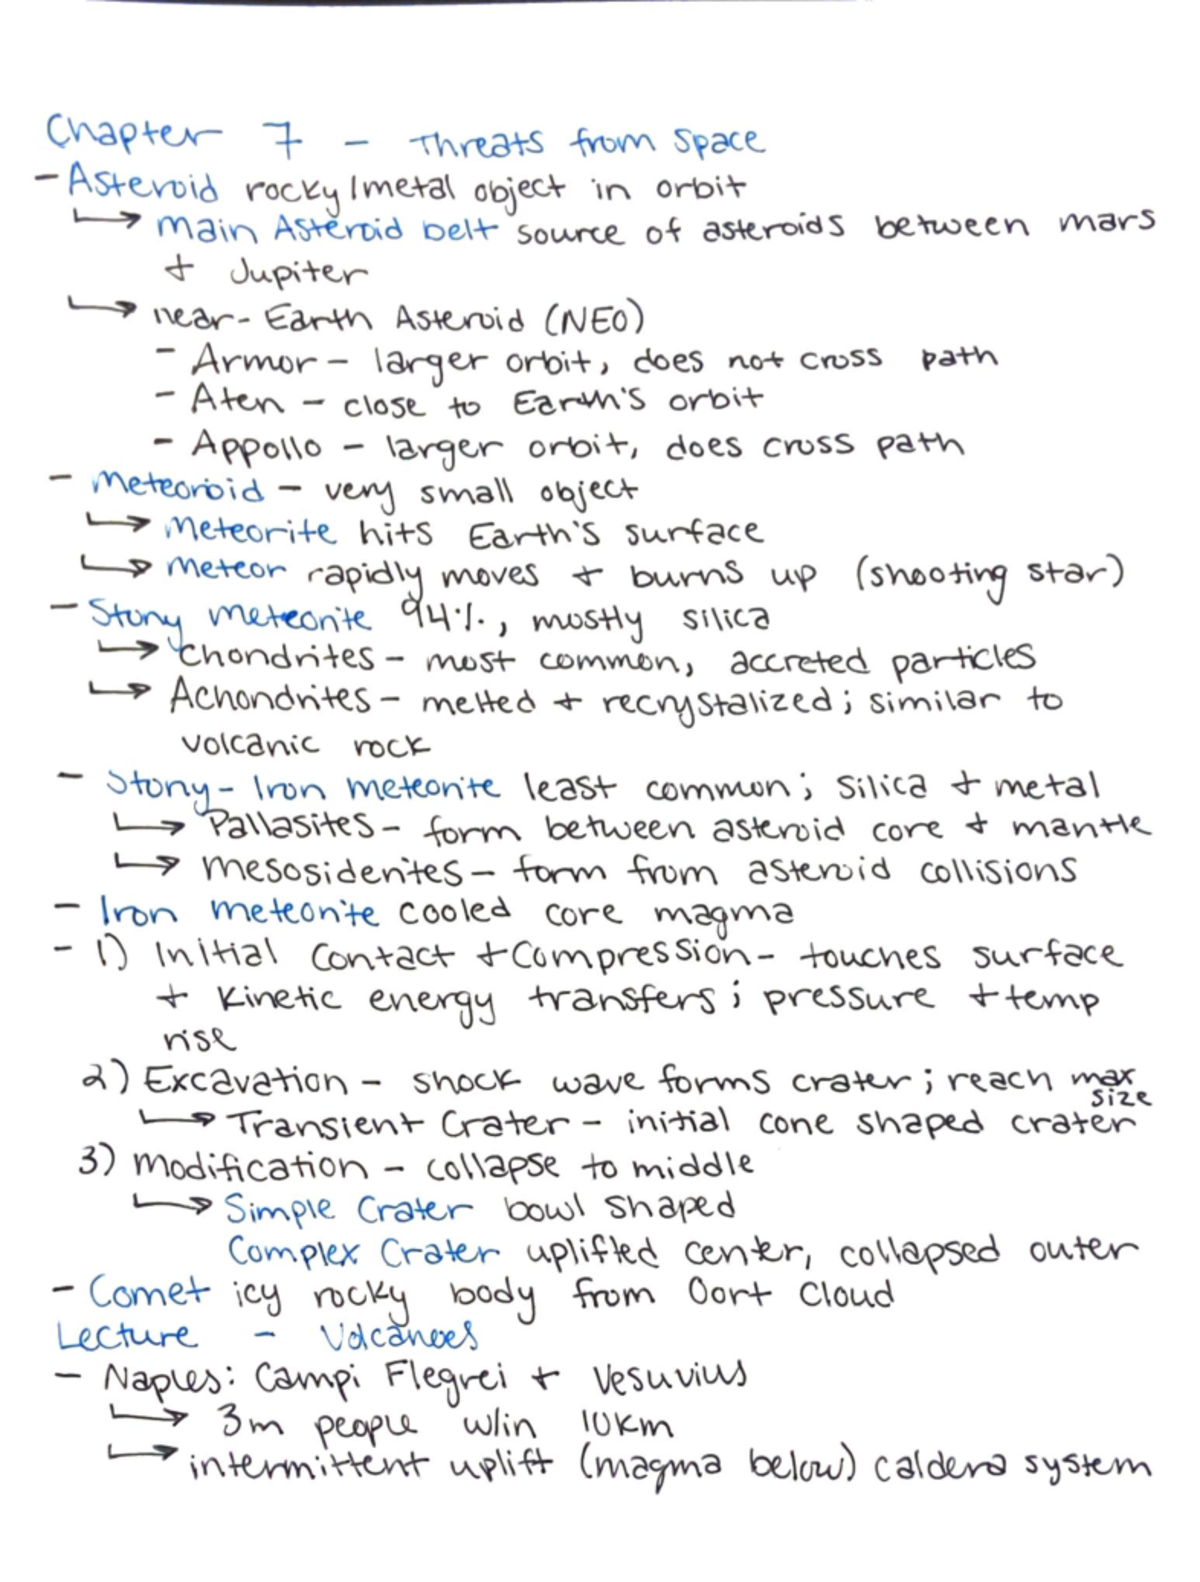 Chapter 7 - Threats from Space
- Asteroid rocky/metal object in orbit
↳ main Asteroid belt source of asteroids between mars
+ Jupiter
↳ near-Earth Asteroid (NEO)
- Armor - larger orbit, does not cross path
- Aten - close to Earth's orbit
- Appollo - larger orbit, does cross path
- Meteoroid - very small object
↳ Meteorite hits Earth's surface
↳ Meteor rapidly moves + burns up (shooting star)
- Stony meteorite 94%, mostly silica
↳ Chondrites - most common, accreted particles
↳ Achondrites - melted + recrystalized; similar to
volcanic rock
- Stony-Iron meteorite least common; silica + metal
↳ Pallasites - form between asteroid core + mantle
↳ Mesosiderites - form from asteroid collisions
- Iron meteorite cooled core magma
- 1) Initial Contact + Compression - touches surface
+ Kinetic energy transfers; pressure + temp
rise
2) Excavation - shock wave forms crater; reach max
size
↳ Transient Crater - initial cone shaped crater
3) Modification - collapse to middle
↳ Simple Crater bowl shaped
Complex Crater uplifted center, collapsed outer
- Comet icy rocky body from Oort Cloud
Lecture - Volcanoes
- Naples: Campi Flegrei + Vesuvius
↳ 3m people w/in 10km
↳ intermittent uplift (magma below) caldera system